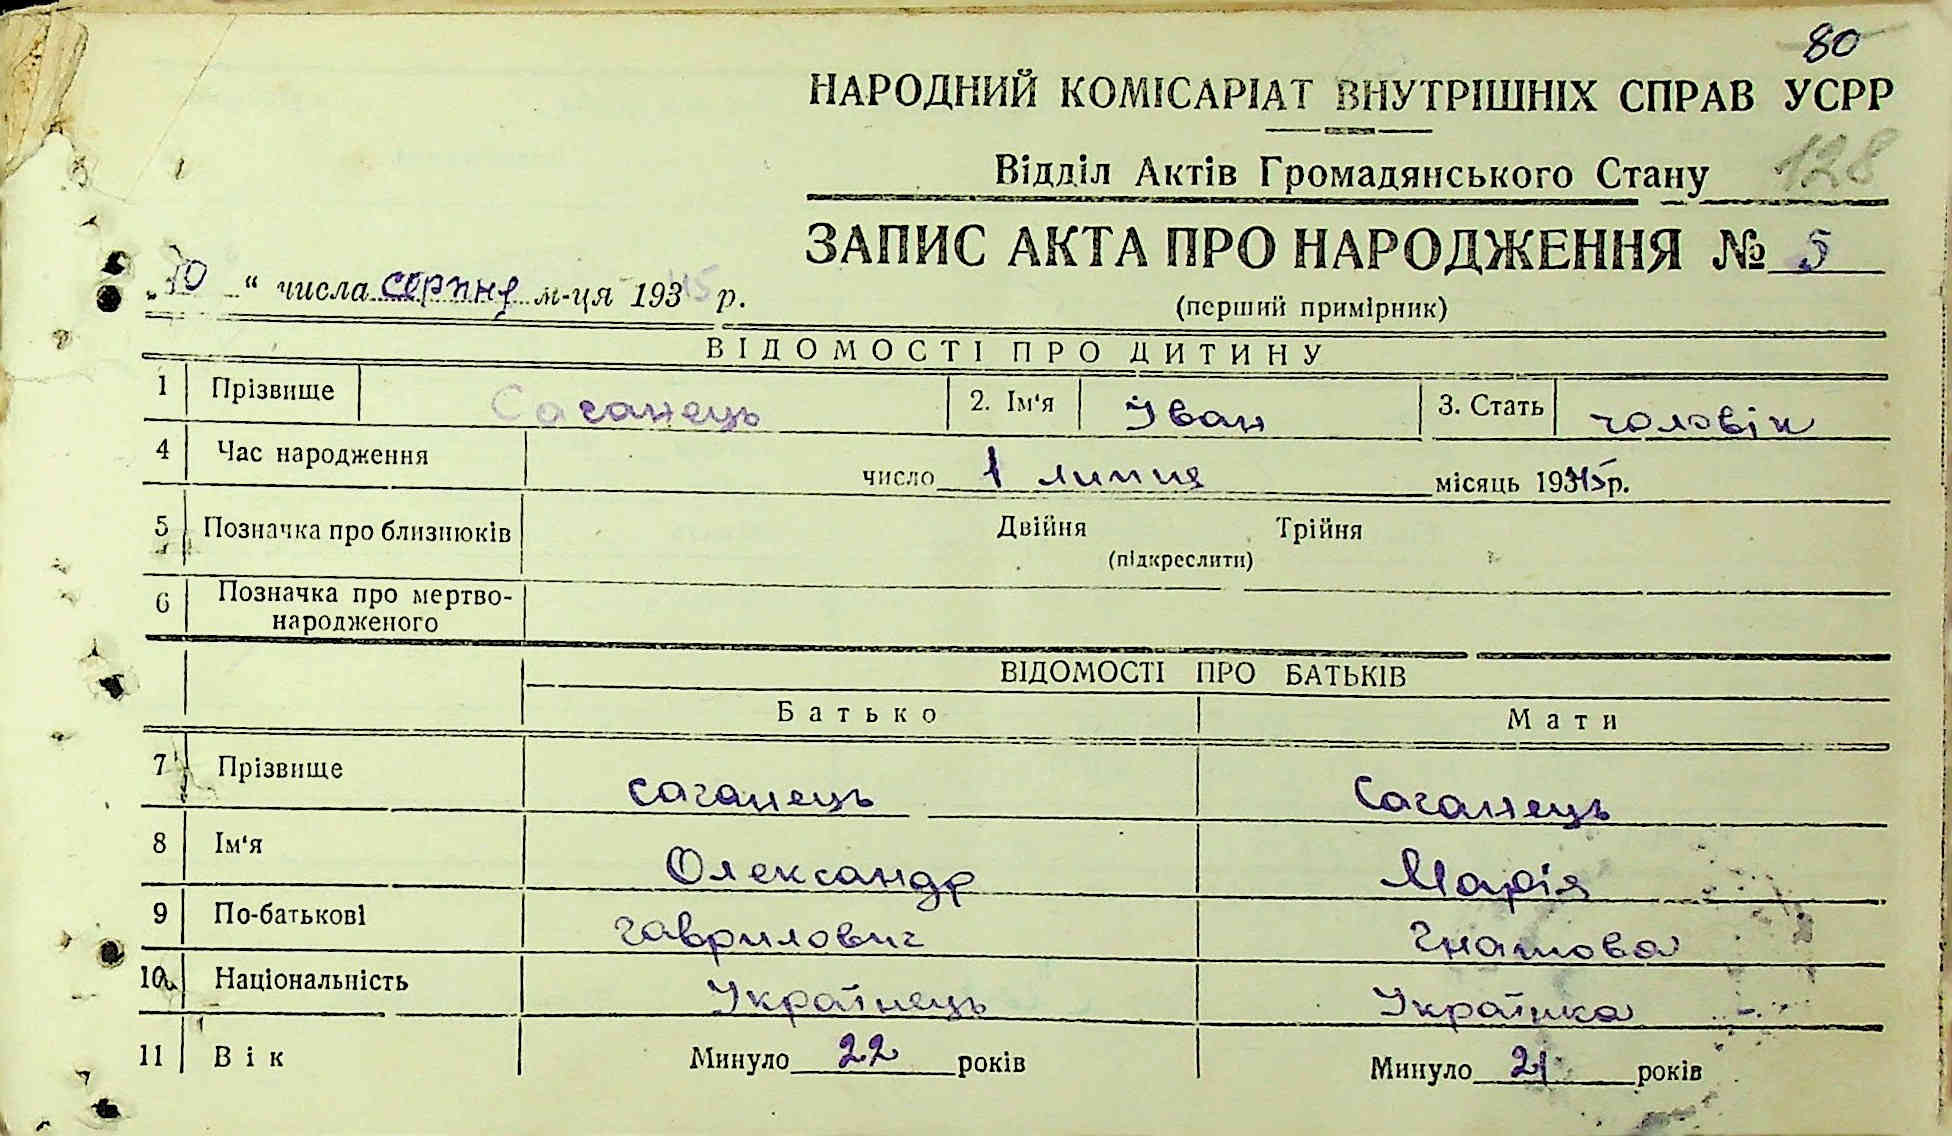 80
НАРОДНИЙ КОМІСАРІАТ ВНУТРІШНІХ СПРАВ УСРР
128
Відділ Актів Громадянського Стану
ЗАПИС АКТА ПРО НАРОДЖЕННЯ № 5
„10“ числа серпня м-ця 193 45 р.
(перший примірник)
ВІДОМОСТІ ПРО ДИТИНУ
1 Прізвище Саганець 2. Ім'я Іван 3. Стать чоловік
4 Час народження число 1 липня місяць 19345р.
5 Позначка про близнюків Двійня Трійня
(підкреслити)
6 Позначка про мертво-
народженого
ВІДОМОСТІ ПРО БАТЬКІВ
Батько Мати
7 Прізвище Саганець Саганець
8 Ім'я Олександр Марія
9 По-батькові Гаврилович Гнатова
10 Національність Українець Українка
11 Вік Минуло 22 років Минуло 21 років